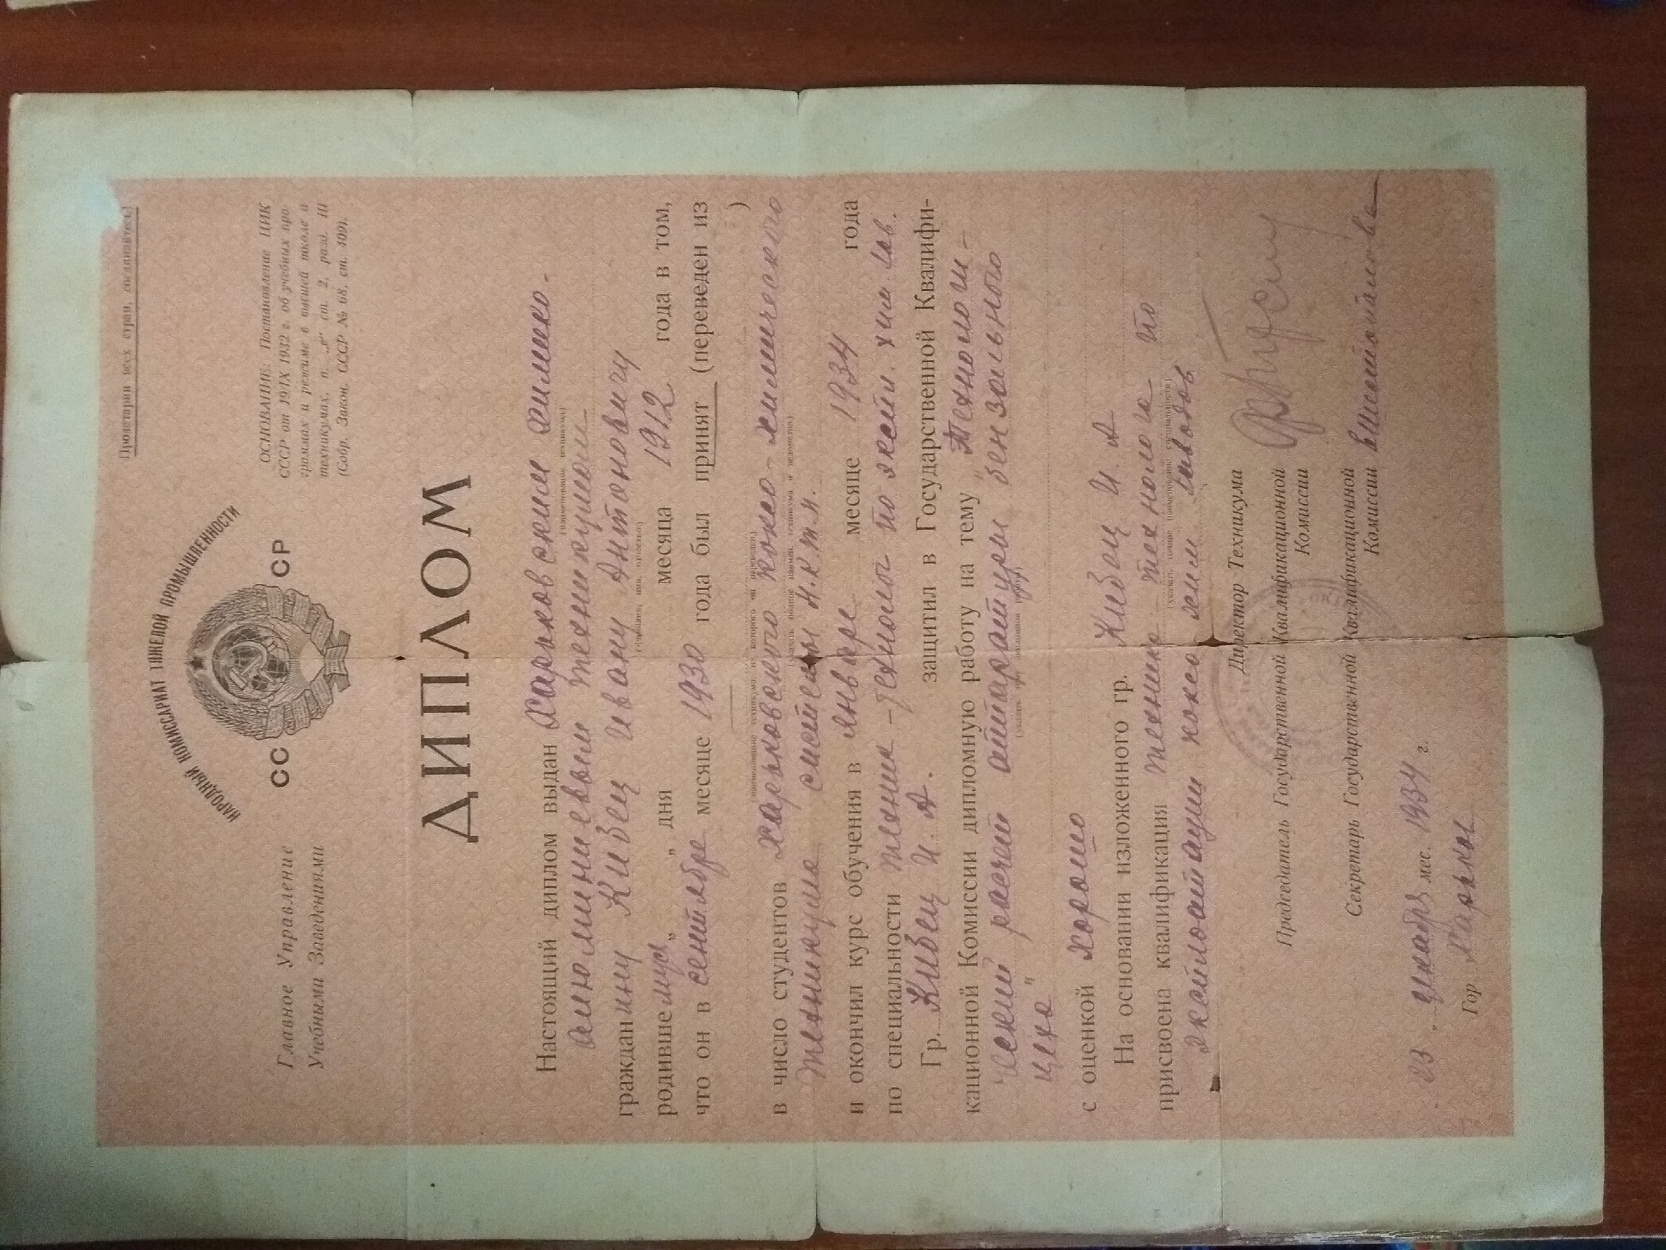 Пролетарии всех стран, соединяйтесь!
НАРОДНЫЙ КОМИССАРИАТ ТЯЖЕЛОЙ ПРОМЫШЛЕННОСТИ
СС СР
Главное Управление
Учебными Заведениями
ОСНОВАНИЕ: Постановление ЦИК
СССР от 19/IX 1932 г. об учебных про-
граммах и режиме в высшей школе и
техникумах, п. „е“ ст. 2, разд. III
(Собр. Закон. СССР № 68, ст. 409).
ДИПЛОМ
Настоящий диплом выдан Харьковским химико-
техникумом
гражданину Кибец Ивану Антоновичу
родившемуся „ „ дня месяца 1912 года в том,
что он в сентябре месяце 1930 года был принят (переведен из
)
в число студентов Харьковского коксо-химического
техникума Н.К.Т.П.
и окончил курс обучения в январе месяце 1934 года
по специальности техник-технолог по экспл. хим.
Гр. Кибец И. А. защитил в Государственной Квалифи-
кационной Комиссии дипломную работу на тему „Технологи-
ческий расчет аппаратуры бензольного
цеха“
с оценкой хорошо
На основании изложенного гр. Кибец И. А
присвоена квалификация техника технолога по
эксплоатации коксо хим. заводов
Директор Техникума
Председатель Государственной Квалификационной
Комиссии
Секретарь Государственной Квалификационной
Комиссии
„23 „ декабря мес. 1934 г.
Гор. Харьков